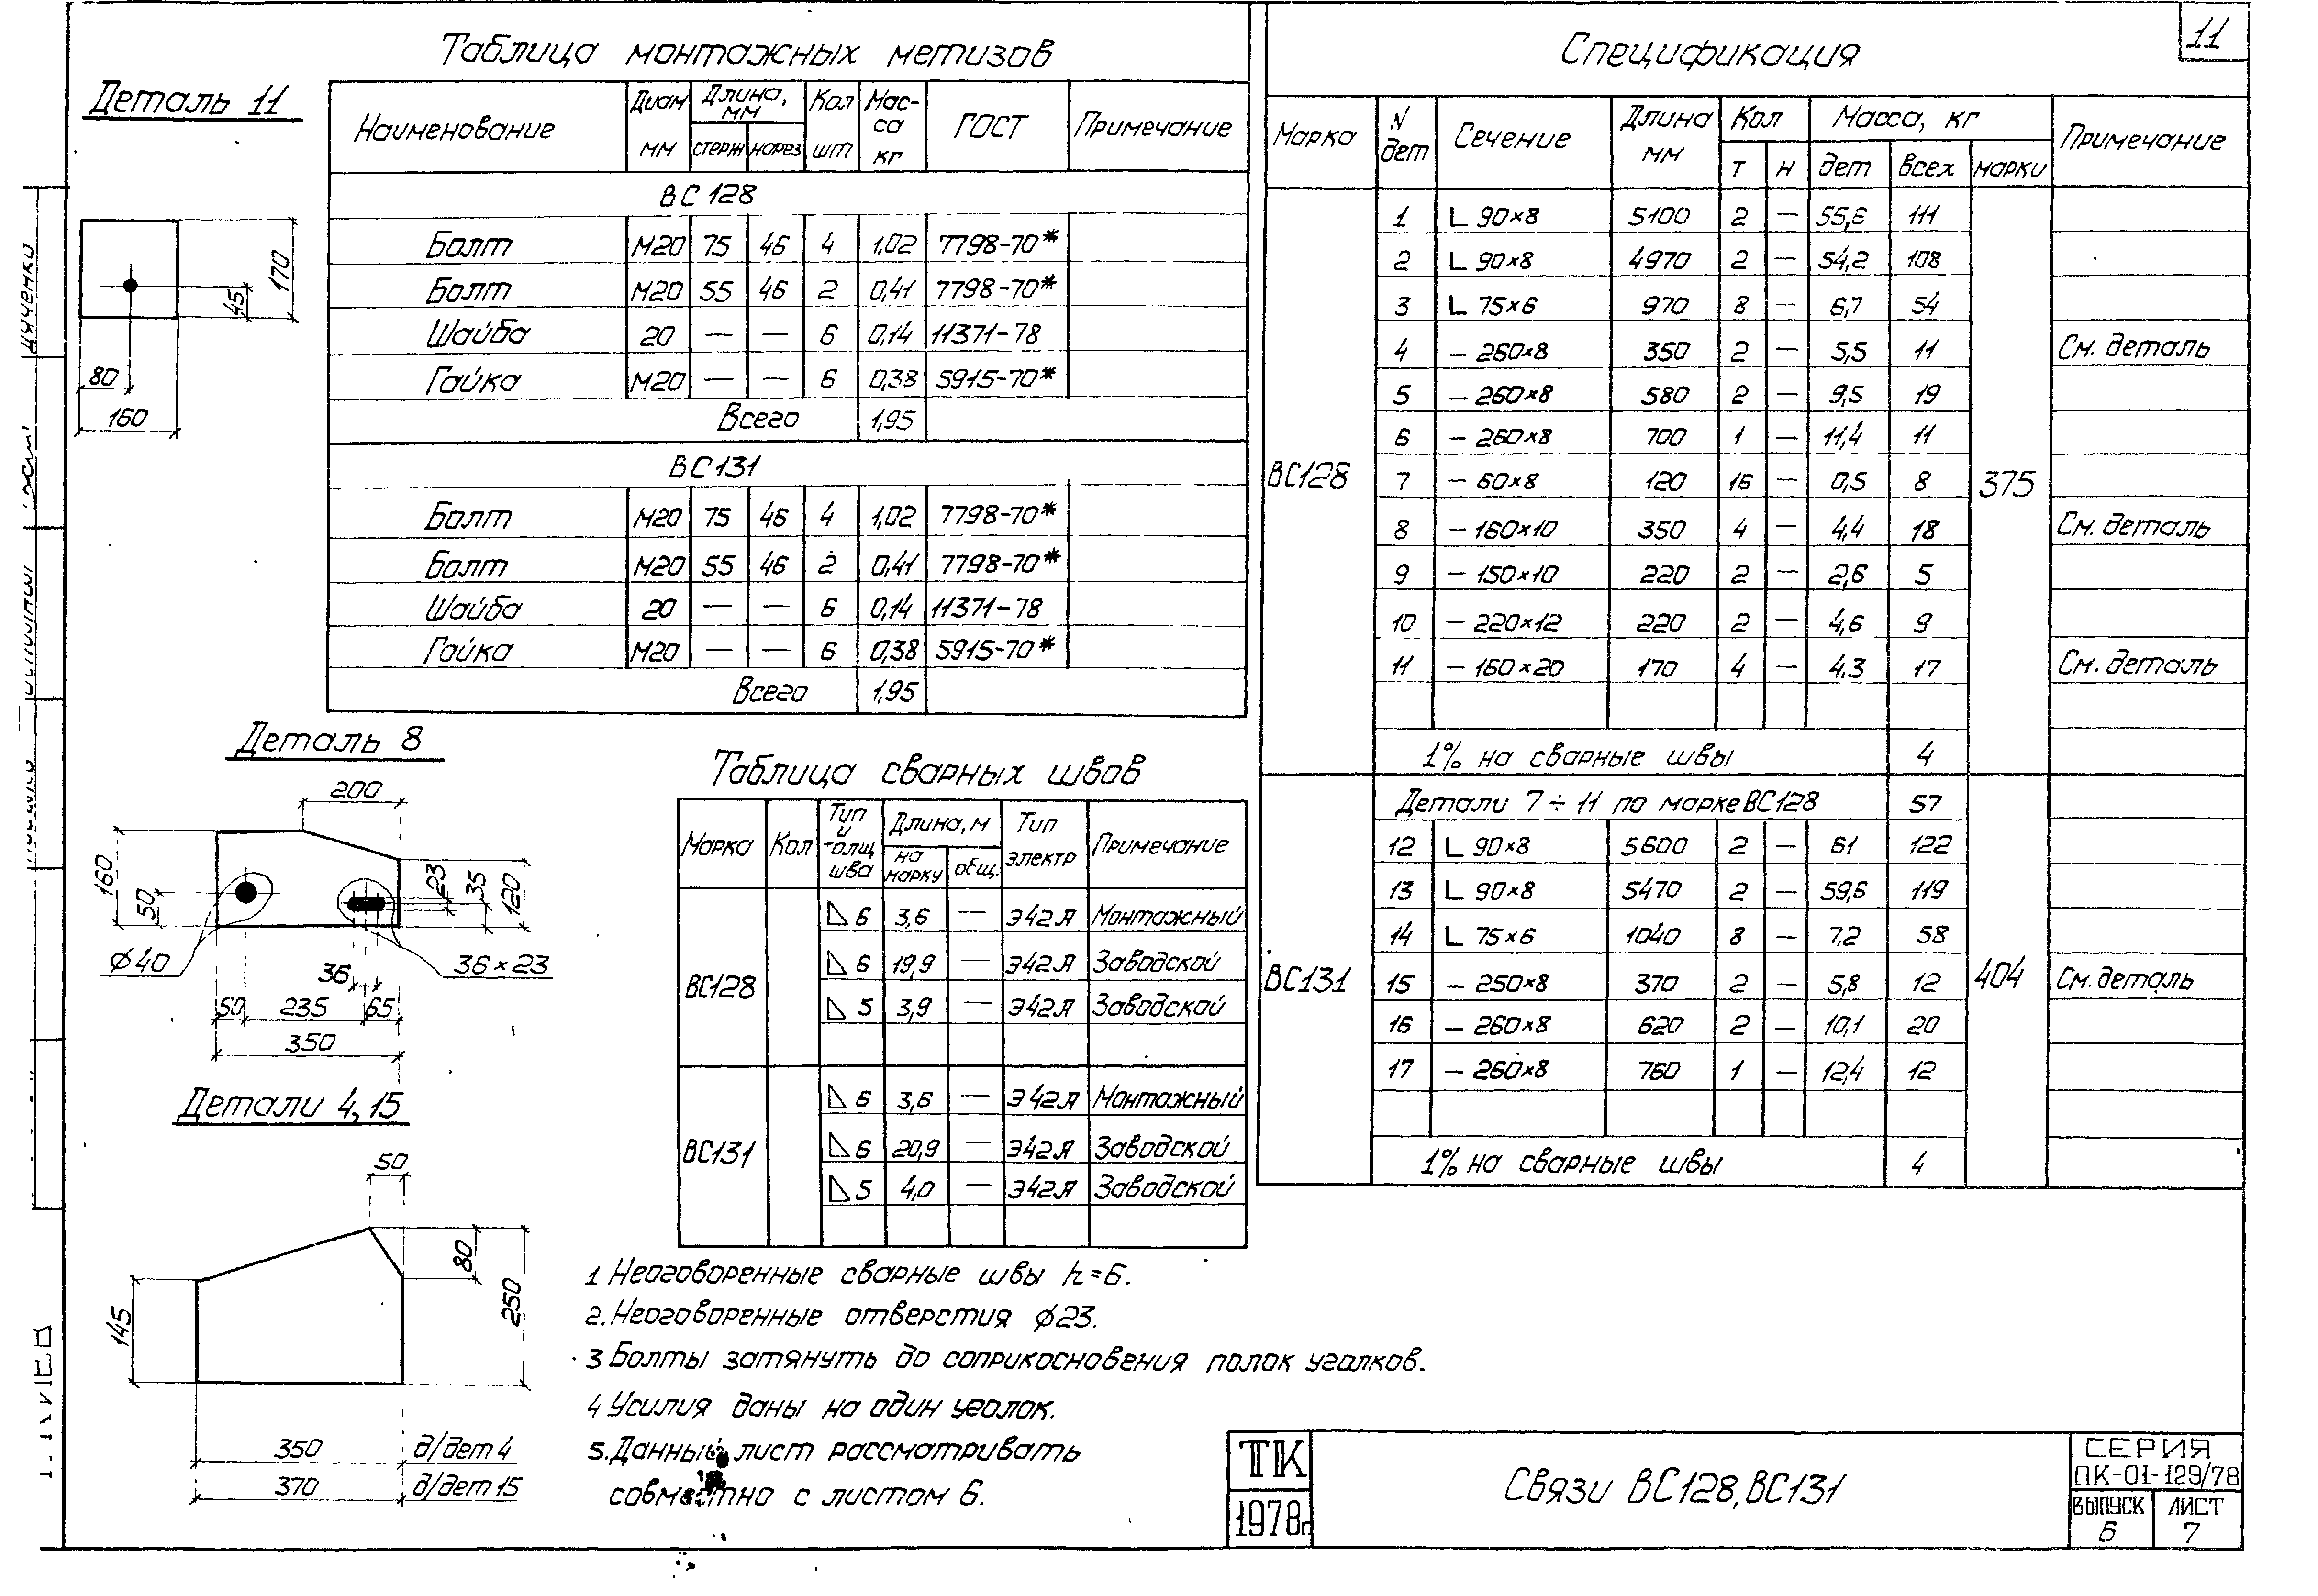 11
Таблица монтажных метизов
Наименование Диам мм Длина, мм стерж нарез Кол шт Масса кг ГОСТ Примечание
ВС128
Болт М20 75 46 4 1,02 7798-70*
Болт М20 55 46 2 0,41 7798-70*
Шайба 20 — — 6 0,14 11371-78
Гайка М20 — — 6 0,38 5915-70*
Всего 1,95
ВС131
Болт М20 75 46 4 1,02 7798-70*
Болт М20 55 46 2 0,41 7798-70*
Шайба 20 — — 6 0,14 11371-78
Гайка М20 — — 6 0,38 5915-70*
Всего 1,95
Деталь 11
170
45
80
160
Деталь 8
200
160
50
23
35
120
ϕ40
36
36×23
50 235 65
350
Детали 4,15
50
80
250
145
350 д/дет 4
370 д/дет 15
Таблица сварных швов
Марка Кол Тип и толщ шва Длина, м на марку общ. Тип электр Примечание
ВС128
⊿ 6 3,6 — Э42А Монтажный
⊿ 6 19,9 — Э42А Заводской
⊿ 5 3,9 — Э42А Заводской
ВС131
⊿ 6 3,6 — Э42А Монтажный
⊿ 6 20,9 — Э42А Заводской
⊿ 5 4,0 — Э42А Заводской
1 Неоговоренные сварные швы h=6.
2. Неоговоренные отверстия ϕ23.
3 Болты затянуть до соприкосновения полок уголков.
4 Усилия даны на один уголок.
5. Данный лист рассматривать
совместно с листом 6.
Спецификация
Марка N дет Сечение Длина мм Кол т н Масса, кг дет всех марки Примечание
ВС128 375
1 L 90×8 5100 2 — 55,6 111
2 L 90×8 4970 2 — 54,2 108
3 L 75×6 970 8 — 6,7 54
4 — 260×8 350 2 — 5,5 11 См. деталь
5 — 260×8 580 2 — 9,5 19
6 — 260×8 700 1 — 11,4 11
7 — 60×8 120 16 — 0,5 8
8 — 160×10 350 4 — 4,4 18 См. деталь
9 — 150×10 220 2 — 2,6 5
10 — 220×12 220 2 — 4,6 9
11 — 160×20 170 4 — 4,3 17 См. деталь
1% на сварные швы 4
ВС131 404
Детали 7÷11 по марке ВС128 57
12 L 90×8 5600 2 — 61 122
13 L 90×8 5470 2 — 59,6 119
14 L 75×6 1040 8 — 7,2 58
15 — 250×8 370 2 — 5,8 12 См. деталь
16 — 260×8 620 2 — 10,1 20
17 — 260×8 760 1 — 12,4 12
1% на сварные швы 4
ТК
1978г.
Связи ВС128, ВС131
СЕРИЯ
ПК-01-129/78
ВЫПУСК ЛИСТ
6 7